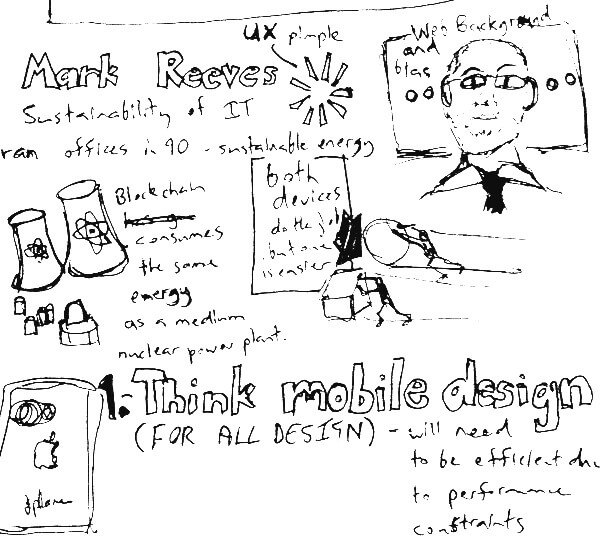 UX pimple
Web Background
and
bias
Mark Reeves
Sustainability of IT
ran offices in 90 - sustainable energy
Blockchain
consumes
the same
energy
as a medium
nuclear power plant.
both
devices
do the job
but one
is easier
1. Think mobile design
(FOR ALL DESIGN) - will need
to be efficient due
to performance
constraints